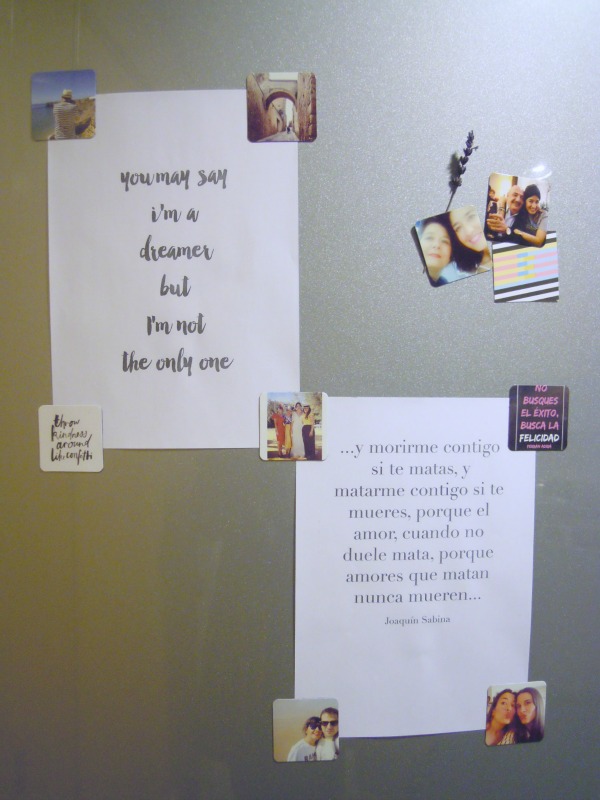 you may say
i'm a
dreamer
but
I'm not
the only one
throw
kindness
around
like confetti
NO
BUSQUES
EL ÉXITO,
BUSCA LA
FELICIDAD
...y morirme contigo
si te matas, y
matarme contigo si te
mueres, porque el
amor, cuando no
duele mata, porque
amores que matan
nunca mueren...
Joaquín Sabina